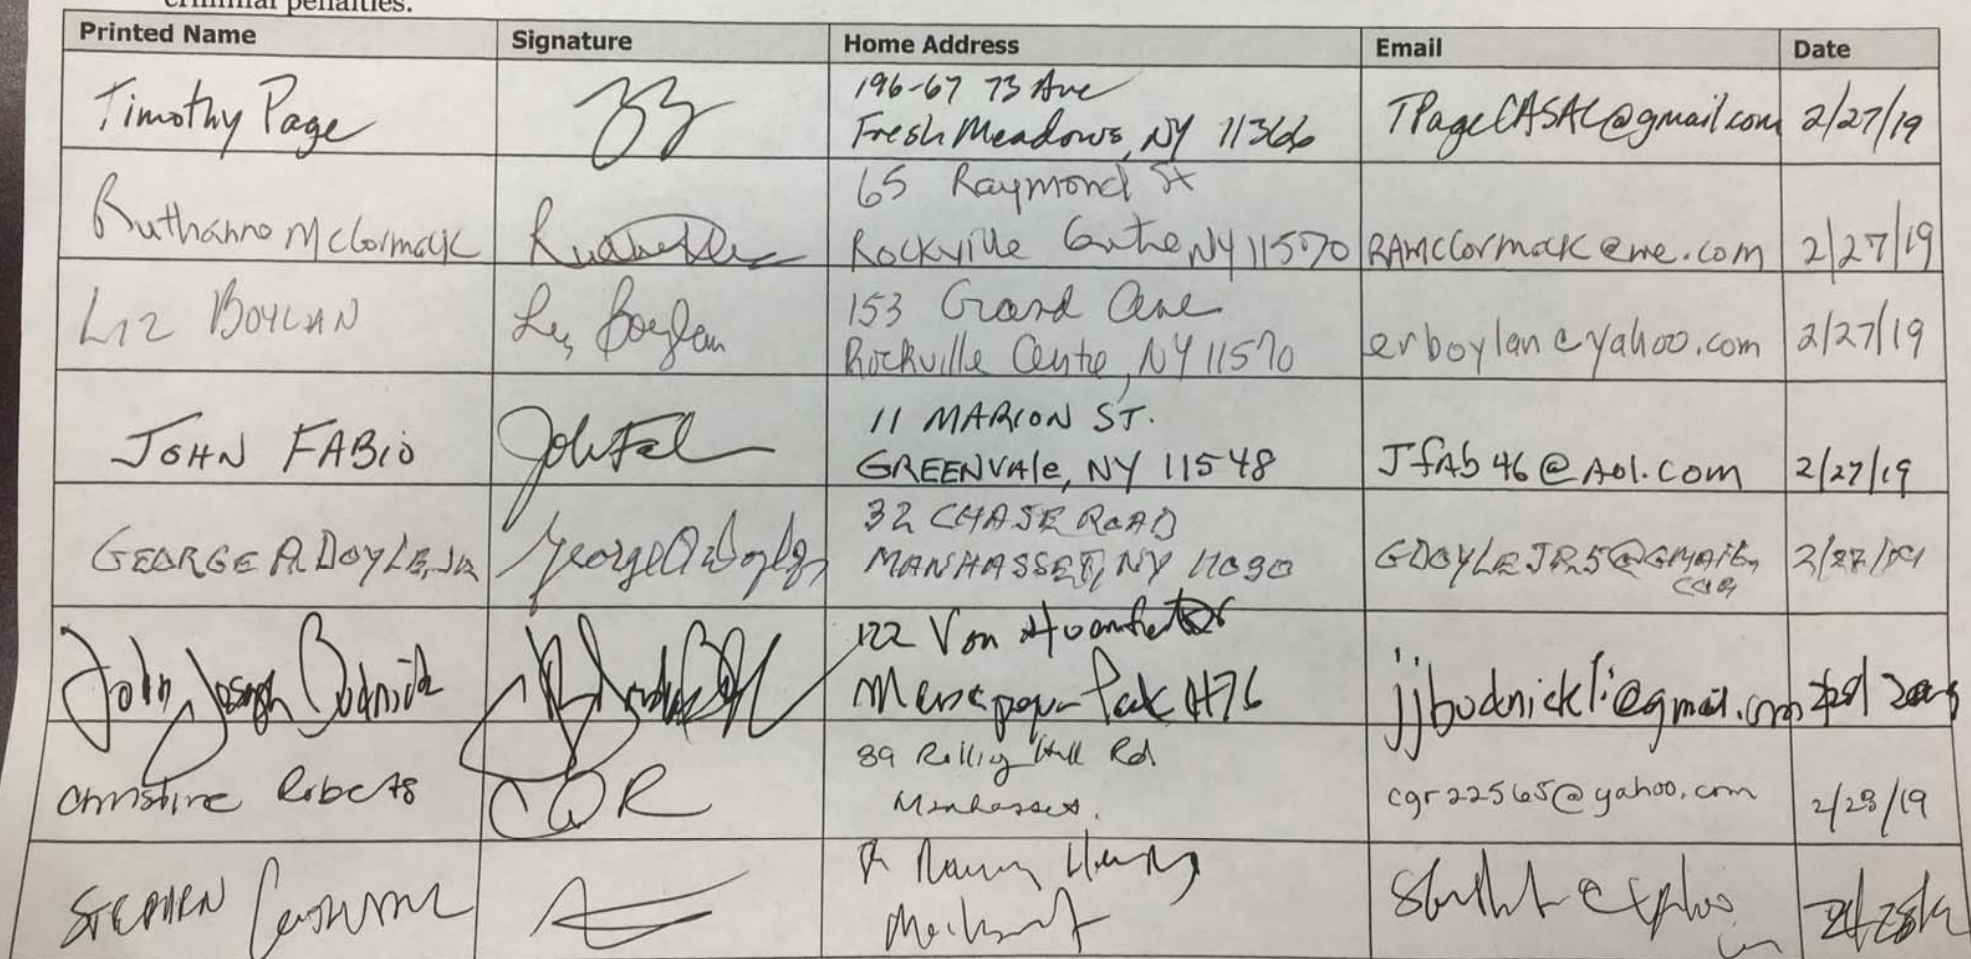 criminal penalties.
Printed Name Signature Home Address Email Date
Timothy Page 196-67 73 Ave
Fresh Meadows, NY 11366 TPageCASAC@gmail.com 2/27/19
Ruthanne McCormack 65 Raymond St
Rockville Centre NY 11570 RAMcCormack@me.com 2/27/19
Liz BOYLAN Liz Boylan 153 Grand Ave
Rockville Centre, NY 11570 erboylan@yahoo.com 2/27/19
JOHN FABIO 11 MARION ST.
GREENVAle, NY 11548 JfAb46@Aol.com 2/27/19
GEORGE A. DOYLE, JR George A Doyle Jr 32 CHASE ROAD
MANHASSET, NY 11030 GDOYLEJR5@GMAIL.
COM 2/27/19
John Joseph Budnick 122 Von
Massapequa Park jjbudnickli@gmail.com
Christine Roberts CGR 89 Rolling Hill Rd
Manhasset. cgr22565@yahoo.com 2/28/19
STEPHEN